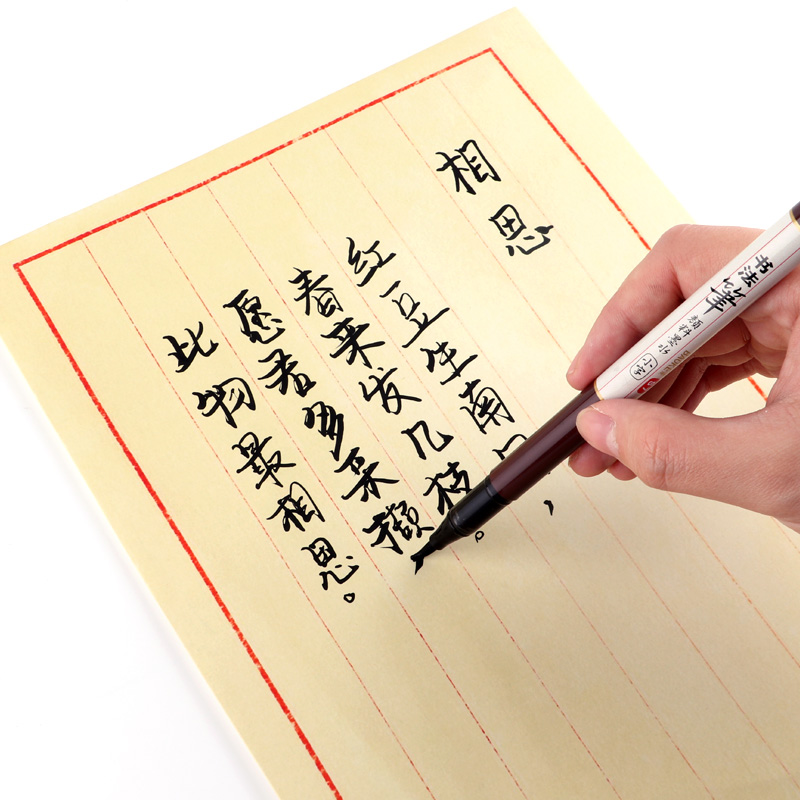 相思
红豆生南
春来发几枝。
愿君多采撷
此物最相思。
书法笔
颜料墨水
小字